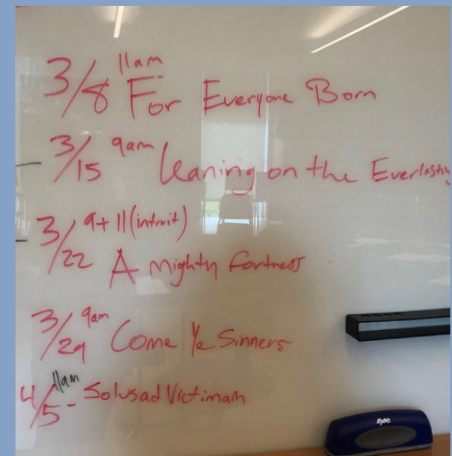 11am
3/8 For Everyone Born
3/15 9am Leaning on the Everlasting
3/22 9+11(introit)
A Mighty Fortress
3/29 9am Come Ye Sinners
4/5- 11am Solusad Victimam
EXPO